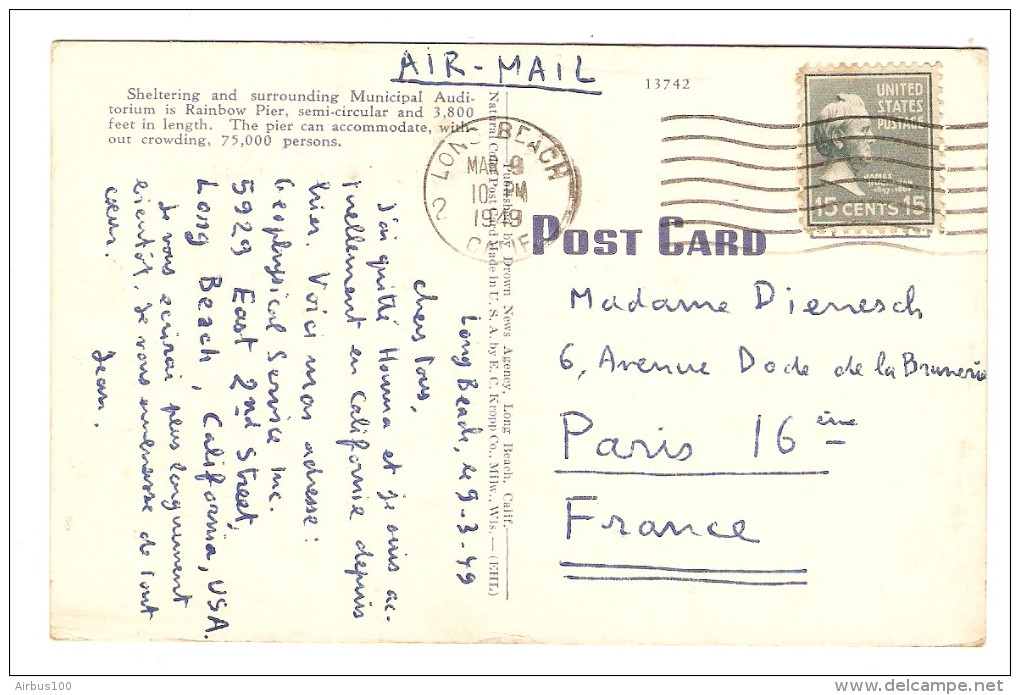 AIR-MAIL
13742
Sheltering and surrounding Municipal Audi-
torium is Rainbow Pier, semi-circular and 3,800
feet in length. The pier can accommodate, with-
out crowding, 75,000 persons.
LONG BEACH
MAR 9
10 PM
1949
CALIF
2
UNITED
STATES
POSTAGE
JAMES
BUCHANAN
15 CENTS 15
POST CARD
Published by Drown News Agency, Long Beach, Calif.
Natural Color Post Card Made in U. S. A. by E. C. Kropp Co., Milw., Wis.—(EHL)
Long Beach, le 9-3-49
Chers Tous,
J'ai quitté Houma et je suis ac-
tuellement en Californie depuis
hier. Voici mon adresse:
Geophysical Service Inc.
5923 East 2nd Street,
Long Beach, California, USA.
Je vous écrirai plus longuement
bientôt. Je vous embrasse de tout
cœur.
Jean.
Madame Dienesch
6, Avenue Dode de la Brunerie
Paris 16ème
France
Airbus100
www.delcampe.net